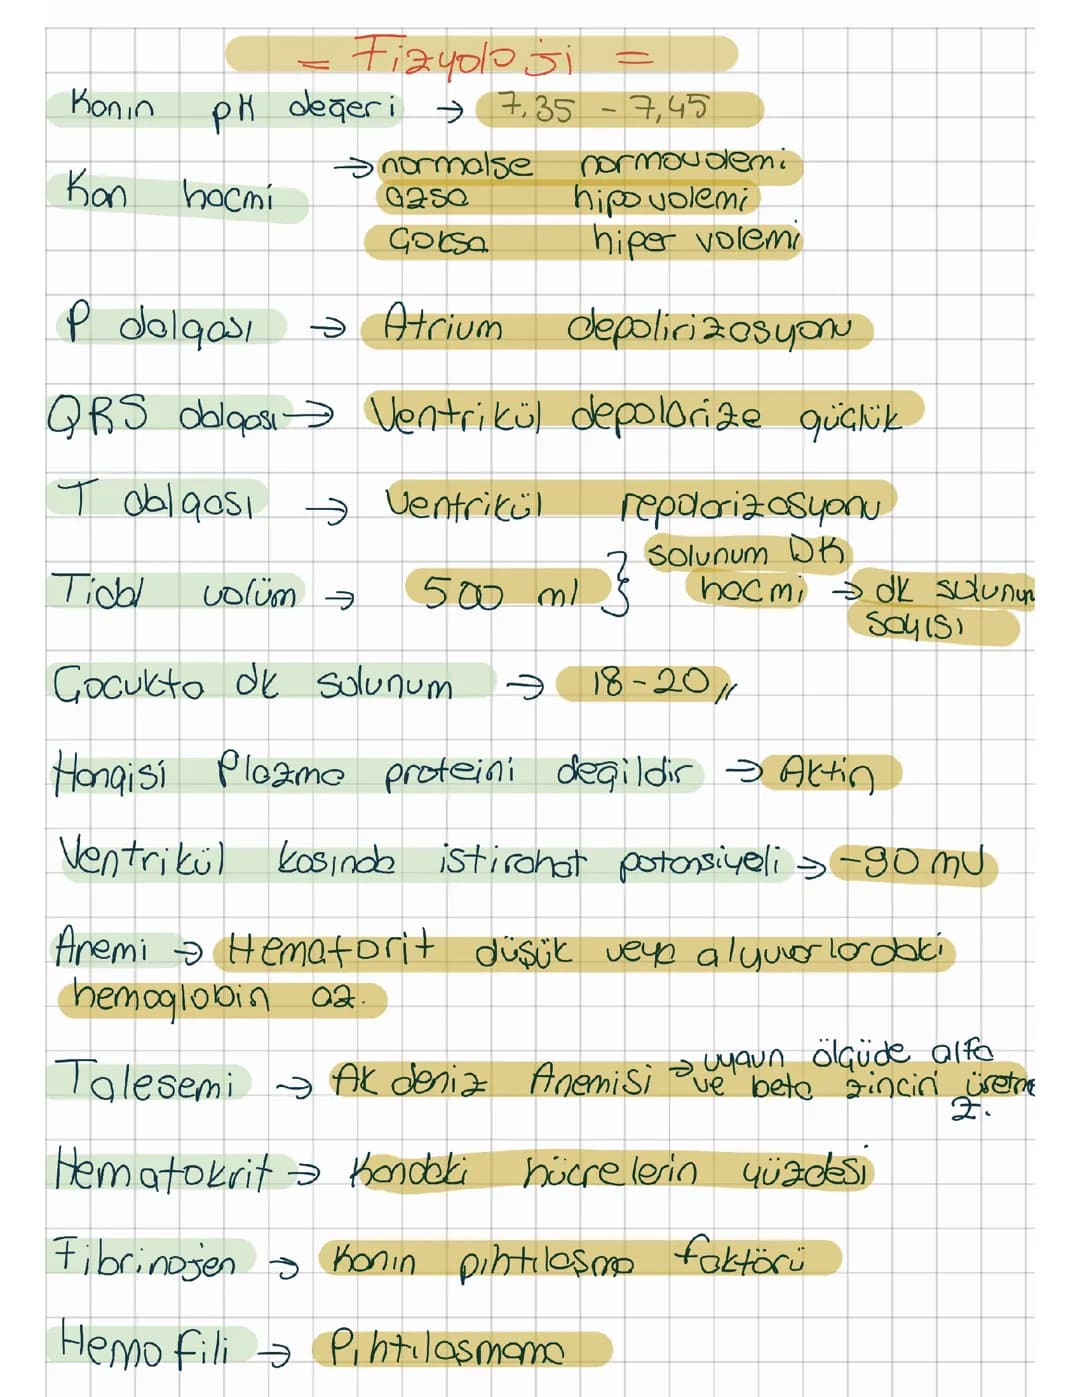 = Fizyoloji =
Kanın pH değeri → 7,35 - 7,45
Kan hacmi → normalse normovolemi
azsa hipovolemi
Çoksa hiper volemi
P dalgası → Atrium depolirizasyonu
QRS dalgası → Ventrikül depolarize güçlük
T dalgası → Ventrikül repolarizasyonu
Tidal volüm → 500 ml } solunum DK
hacmi → dk solunum
sayısı
Çocukta dk solunum → 18-20 //
Hangisi Plazma proteini değildir → Aktin
Ventrikül kasında istirahat potansiyeli → -90 mV
Anemi → Hematorit düşük veya alyuvarlardaki
hemoglobin az.
Talesemi → Ak deniz Anemisi → uygun ölçüde alfa
ve beta zinciri üretme
z.
Hematokrit → Kandaki hücrelerin yüzdesi
Fibrinojen → Kanın pıhtılaşma faktörü
Hemofili → Pıhtılaşmama